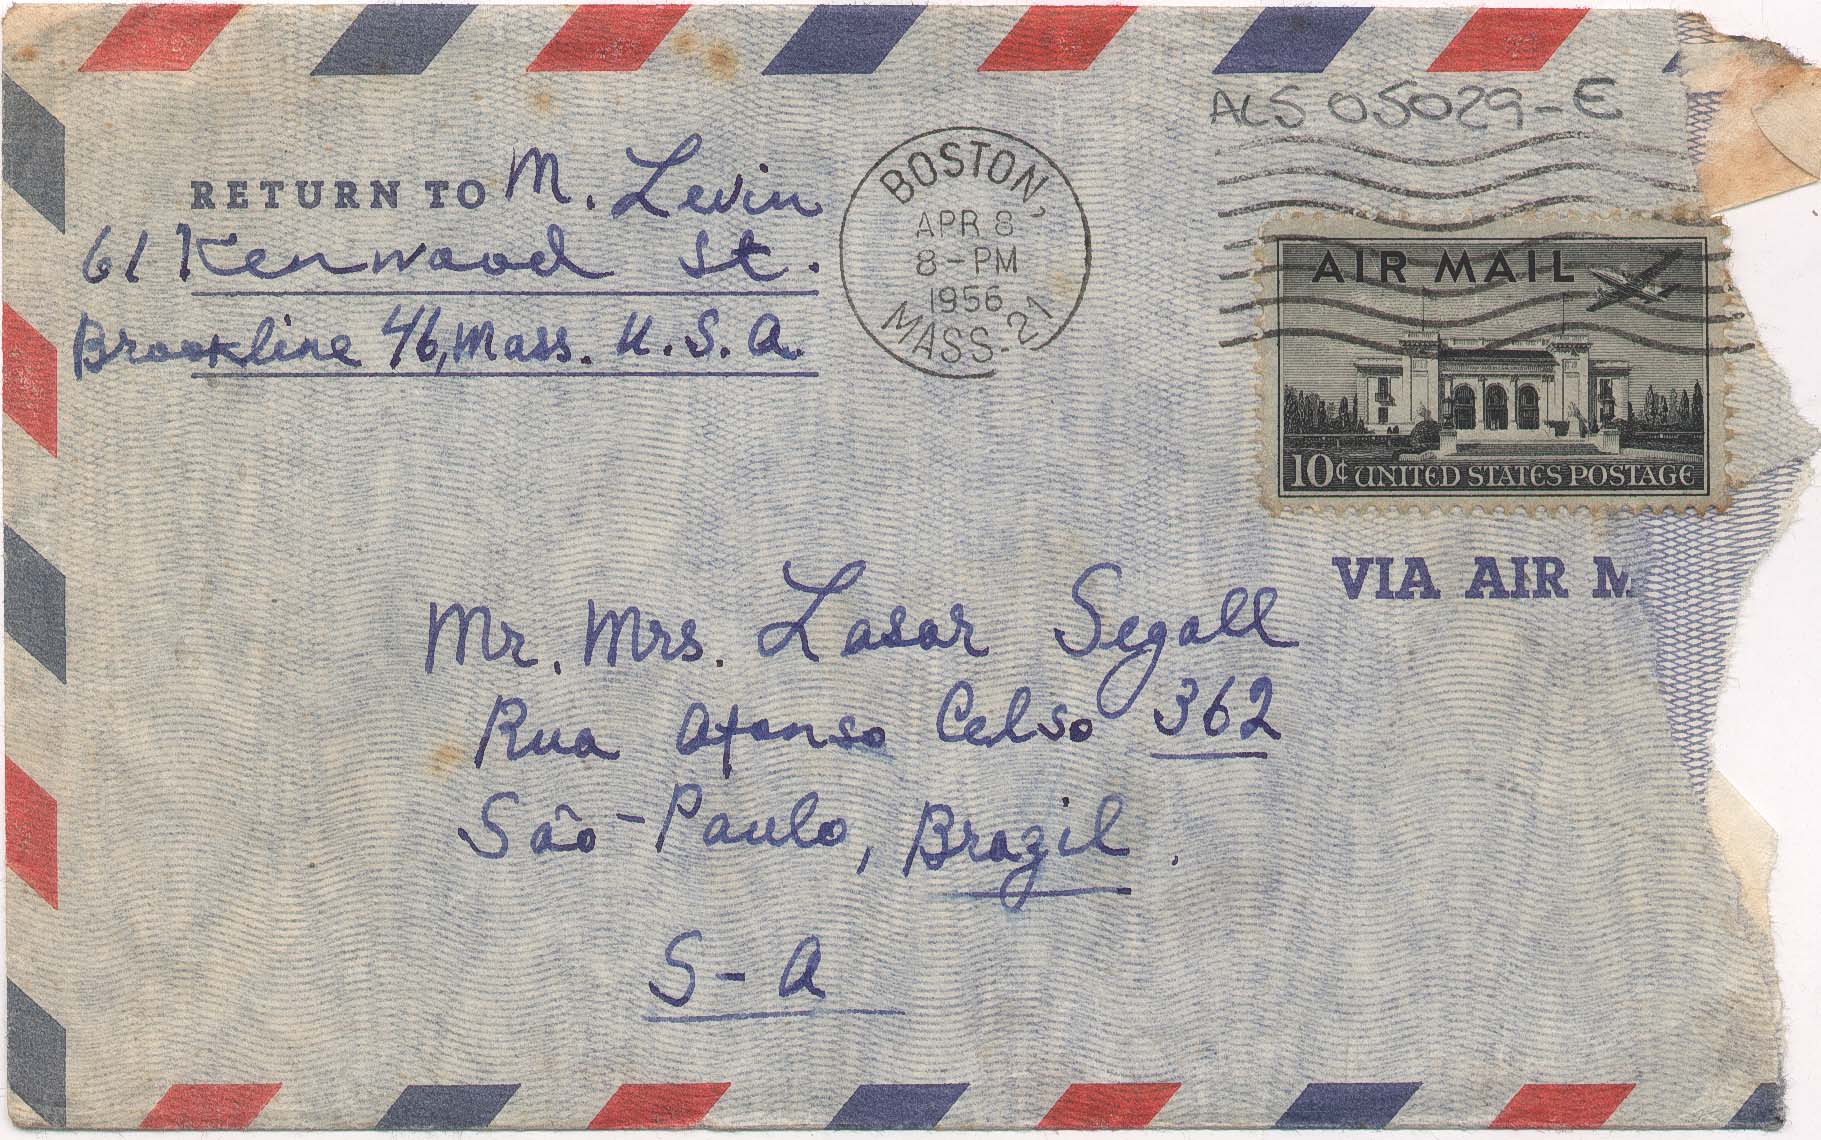 ALS 05029-E
RETURN TO M. Levin
61 Kenwood St.
Brookline 46, Mass. U.S.A.
BOSTON,
APR 8
8-PM
1956
MASS. 21
AIR MAIL
10¢ UNITED STATES POSTAGE
VIA AIR M
Mr. Mrs. Lasar Segall
Rua Afonso Celso 362
São-Paulo, Brazil.
S-A